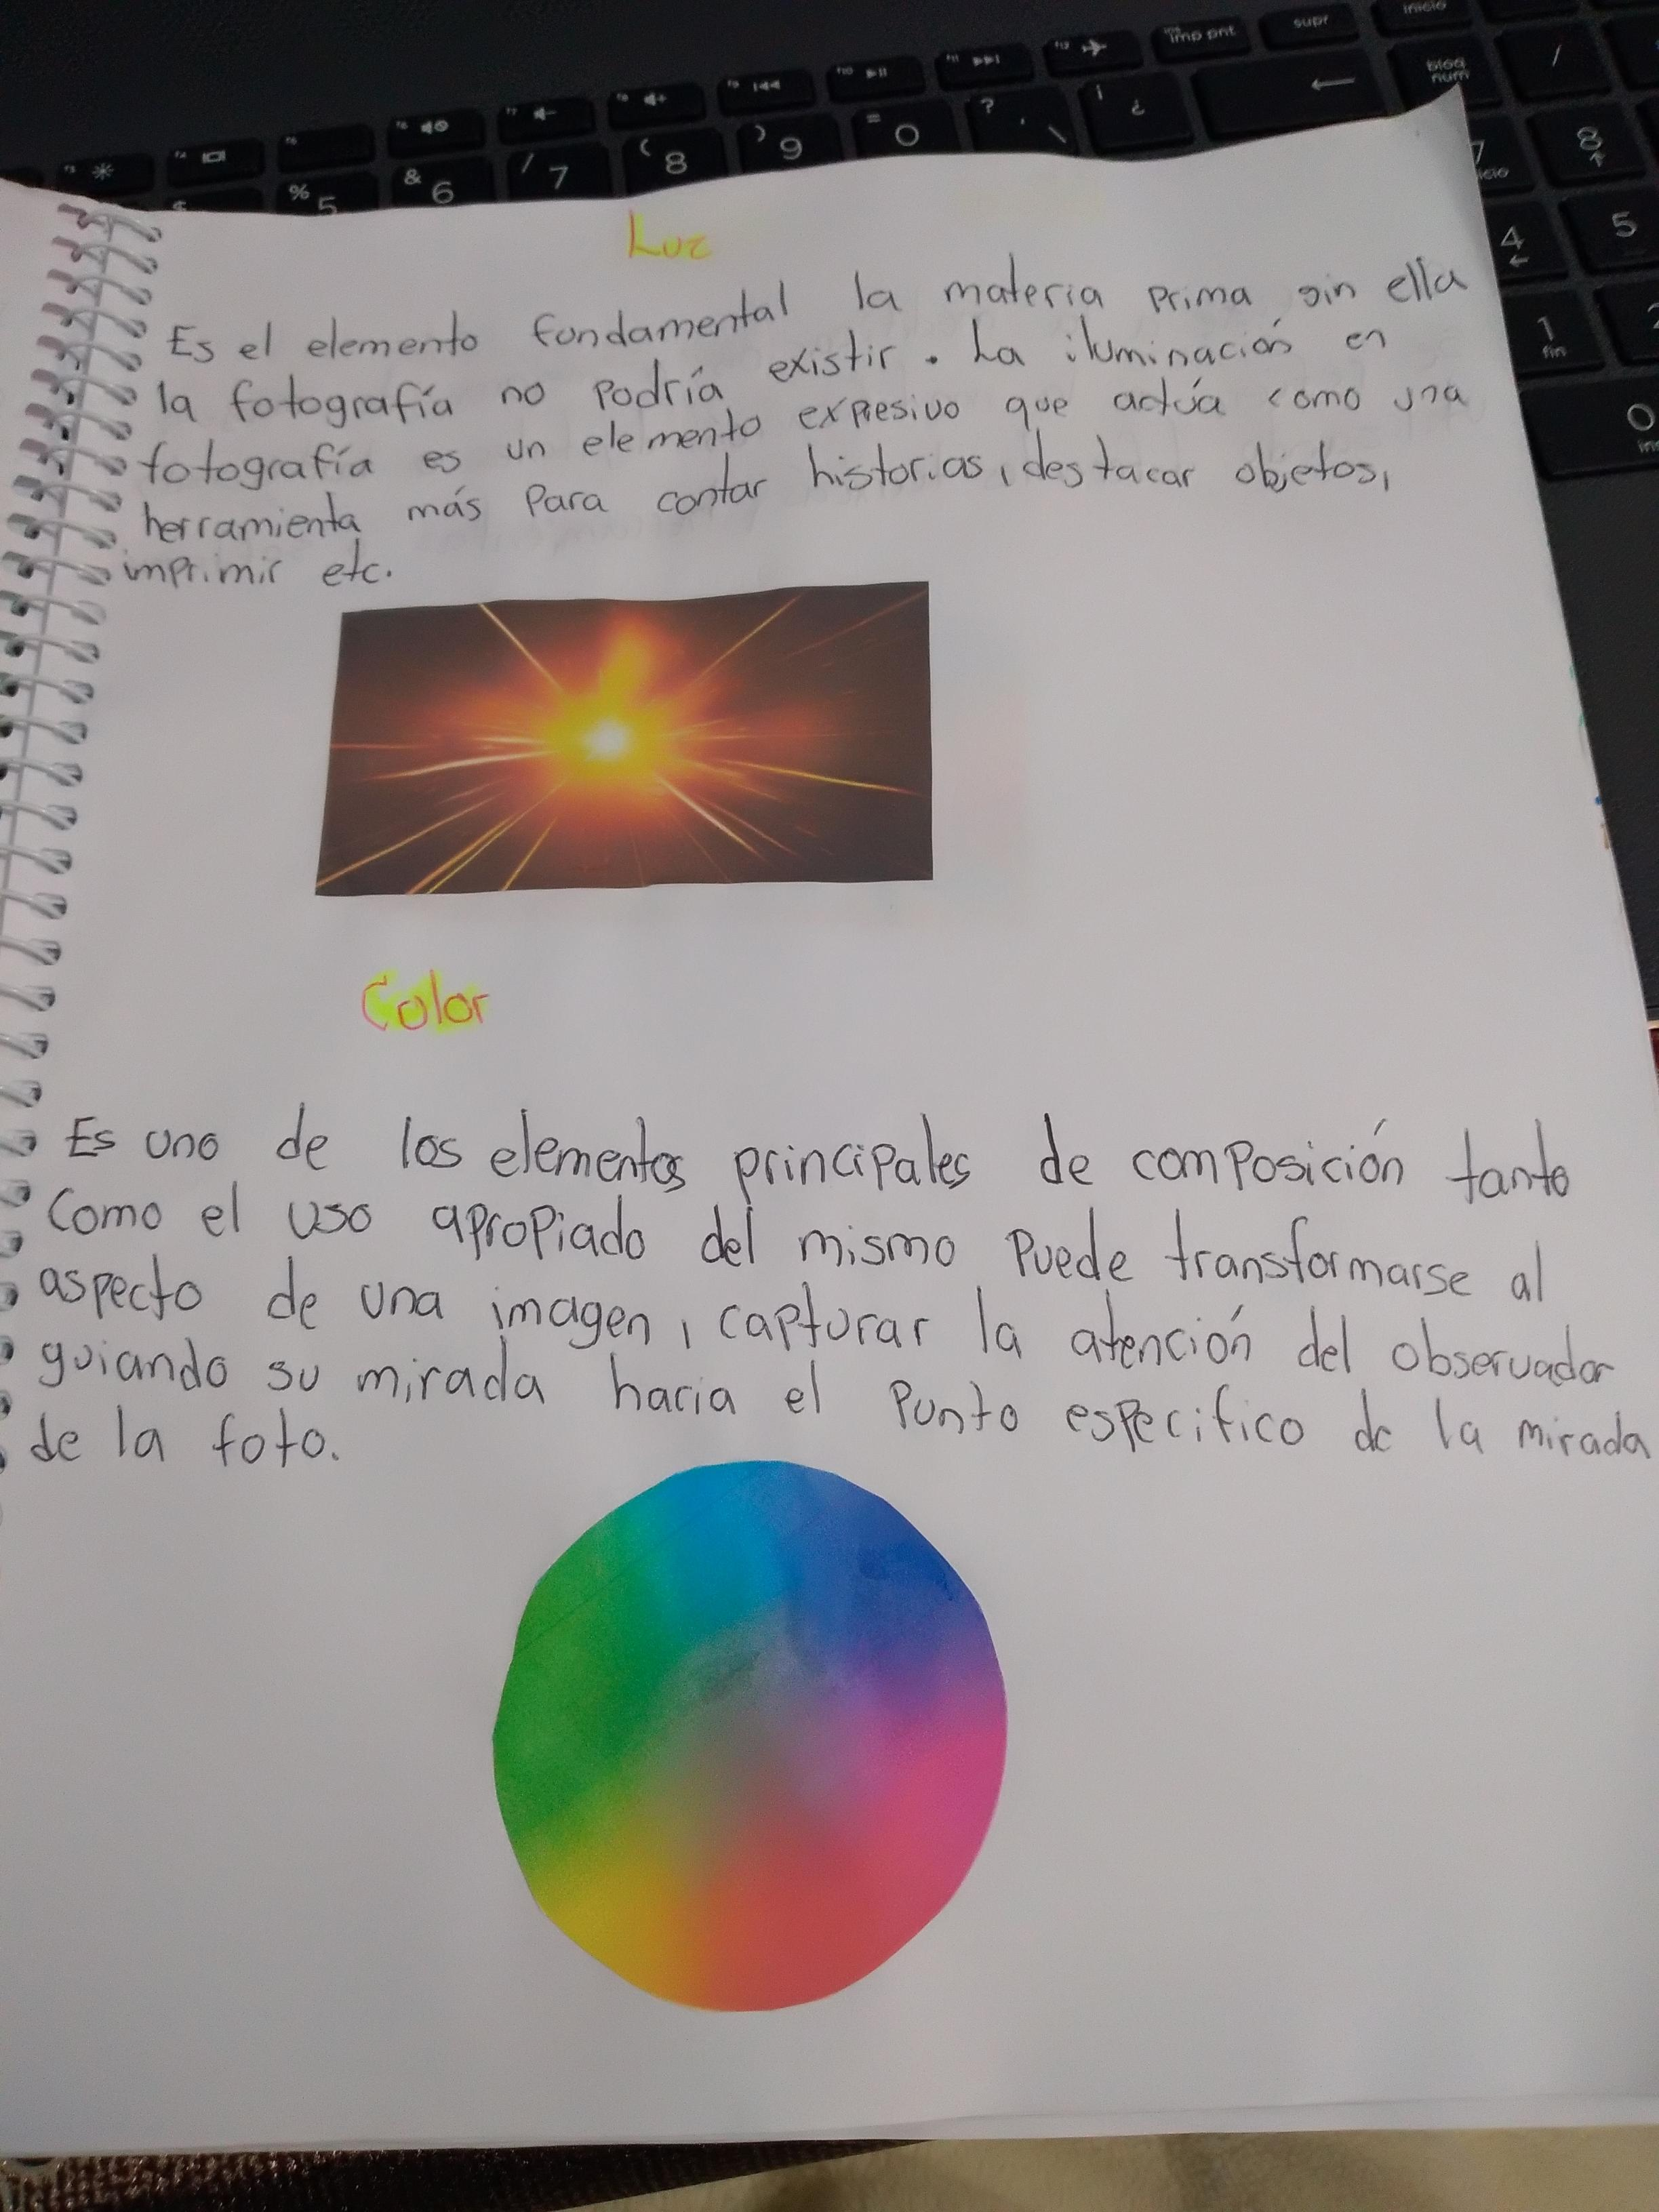 imp pnt
supr
inicio
bloq num
/
% 5
& 6
/ 7
( 8
) 9
= 0
?
¿
8
4
5
1
fin
0
Luz
Es el elemento fundamental la materia prima sin ella
la fotografía no podría existir. La iluminación en
fotografía es un elemento expresivo que actúa como una
herramienta más para contar historias, destacar objetos,
imprimir etc.
Color
Es uno de los elementos principales de composición tanto
Como el uso apropiado del mismo puede transformarse al
aspecto de una imagen, capturar la atención del observador
guiando su mirada hacia el punto especifico de la mirada
de la foto.